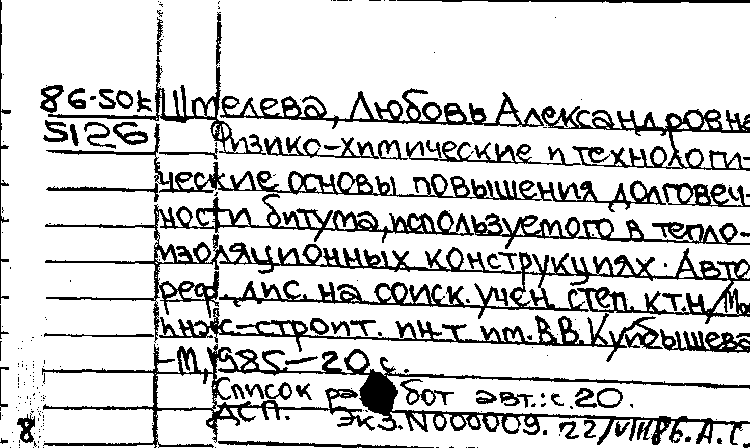 86-50к Штелева, Любовь Александровна
5126 Физико-химические и технологи-
ческие основы повышения долговеч-
ности битума, используемого в тепло-
изоляционных конструкциях. Авто
реф. дис. на соиск. учен. степ. к.т.н/Мо
инж-строит. ин-т им. В.В. Куйбышева
-М, 1985-20 с.
Список работ авт.: с. 20.
ДСП. Экз. N000009. 22/VIII86. А.Г.
8